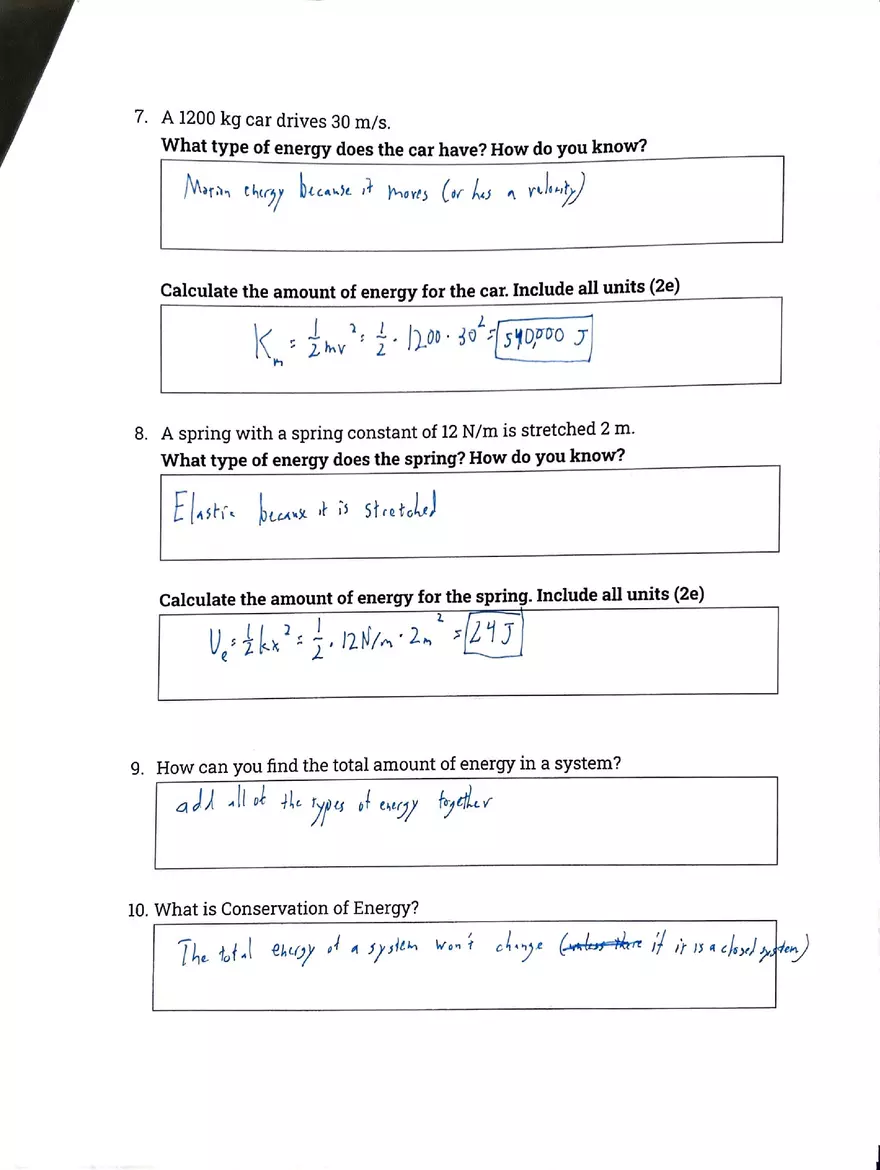 7. A 1200 kg car drives 30 m/s.
What type of energy does the car have? How do you know?
Motion energy because it moves (or has a velocity)
Calculate the amount of energy for the car. Include all units (2e)
Kₘ = 1/2 mv² = 1/2 · 1200 · 30² = 540,000 J
8. A spring with a spring constant of 12 N/m is stretched 2 m.
What type of energy does the spring? How do you know?
Elastic because it is stretched
Calculate the amount of energy for the spring. Include all units (2e)
Uₑ = 1/2 kx² = 1/2 · 12N/m · 2m² = 24 J
9. How can you find the total amount of energy in a system?
add all of the types of energy together
10. What is Conservation of Energy?
The total energy of a system won't change (unless there if it is a closed system)